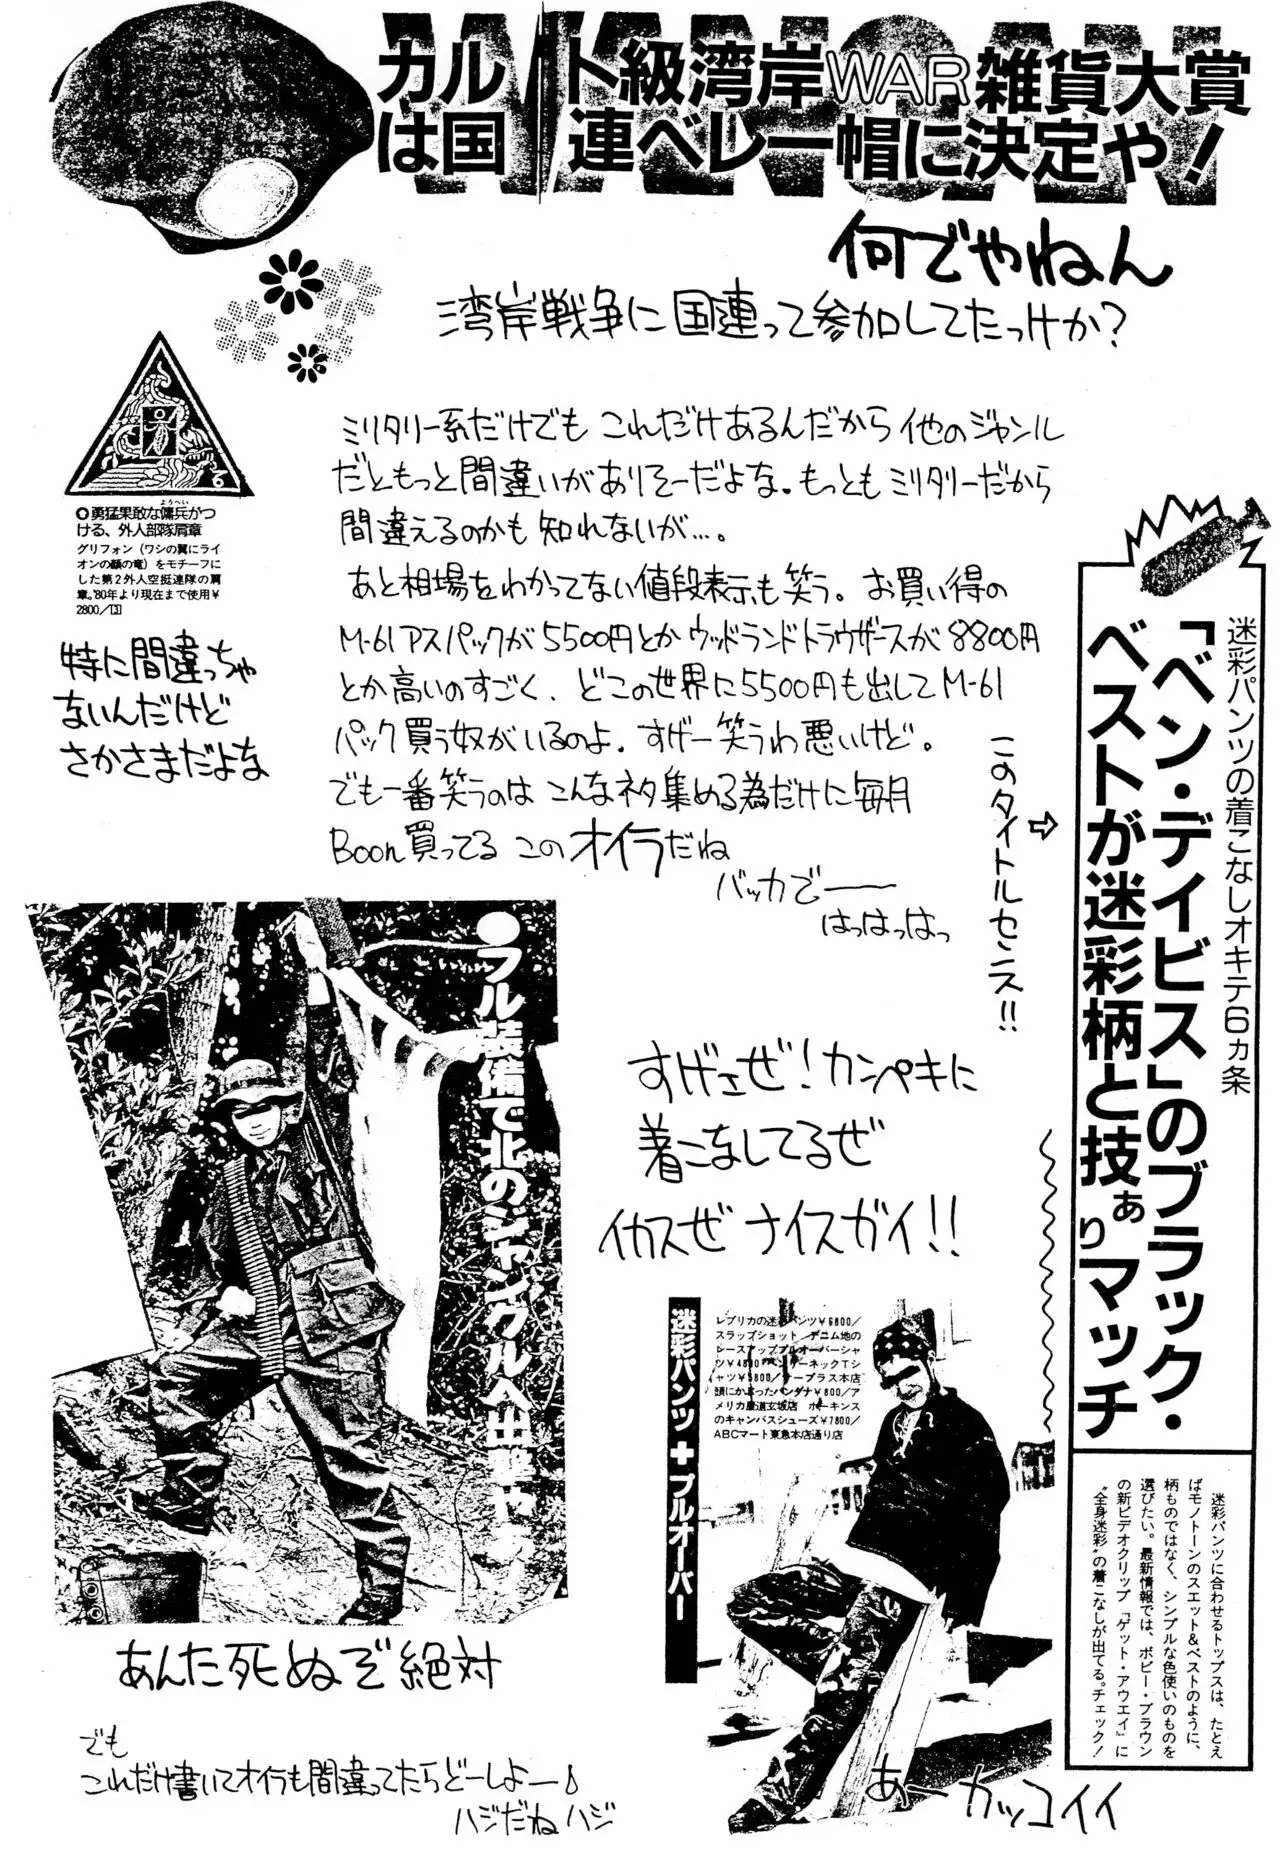 WANGAN
カルト級湾岸WAR雑貨大賞
は国連ベレー帽に決定や!
何でやねん
湾岸戦争に国連って参加してたっけか?
ミリタリー系だけでも これだけあるんだから他のジャンル
だともっと間違いがありそーだよな。もっともミリタリーだから
間違えるのかも知れないが…。
あと相場をわかってない値段表示も笑う。お買い得の
M-61アスパックが5500円とかウッドランドトラウザースが8800円
とか高いのすごく、どこの世界に5500円も出してM-61
パック買う奴がいるのよ。すげー笑うわ悪いけど。
でも一番笑うのは こんなネタ集める為だけに毎月
Boon買ってる このオイラだね
バッカでー
はっはっはっ
◎勇猛果敢な傭兵がつ
ようへい
ける、外人部隊肩章
グリフォン(ワシの翼にライ
オンの顔の竜)をモチーフに
した第2外人空挺連隊の肩
章。'80年より現在まで使用¥
2800/3
特に間違っちゃ
ないんだけど
さかさまだよな
このタイトルセンス!!
迷彩パンツの着こなしオキテ6カ条
「ベン・デイビス」のブラック・
ベストが迷彩柄と技ありマッチ
ぁ
迷彩パンツに合わせるトップスは、たとえ
ばモノトーンのスエット&ベストのように、
柄ものではなく、シンプルな色使いのものを
選びたい。最新情報では、ボビー・ブラウン
の新ビデオクリップ『ゲット・アウエイ』に
"全身迷彩"の着こなしが出てる。チェック!
●フル装備で北のジャングルへ出撃
すげさぜ!カンペキに
着こなしてるぜ
イカスぜ ナイスガイ!!
あんた死ぬぞ絶対
でも
これだけ書いてオイラも間違ってたらどーしよー♪
ハジだねハジ
迷彩パンツ+プルオーバー
レプリカの迷彩パンツ¥6800/
スラップショット デニム地の
レースアッププルオーバーシャ
ツ¥4800 ヘンリーネックTシ
ャツ¥5800/サープラス本店
頭にかぶったバンダナ¥800/ア
メリカ屋道玄坂店 ホーキンス
のキャンバスシューズ¥7800/
ABCマート東急本店通り店
あーカッコイイ